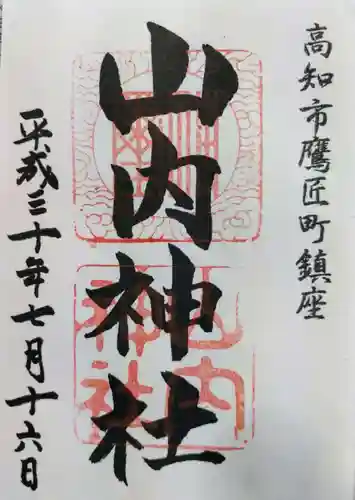 高知市鷹匠町鎮座
山内神社
平成三十年七月十六日
山内神社